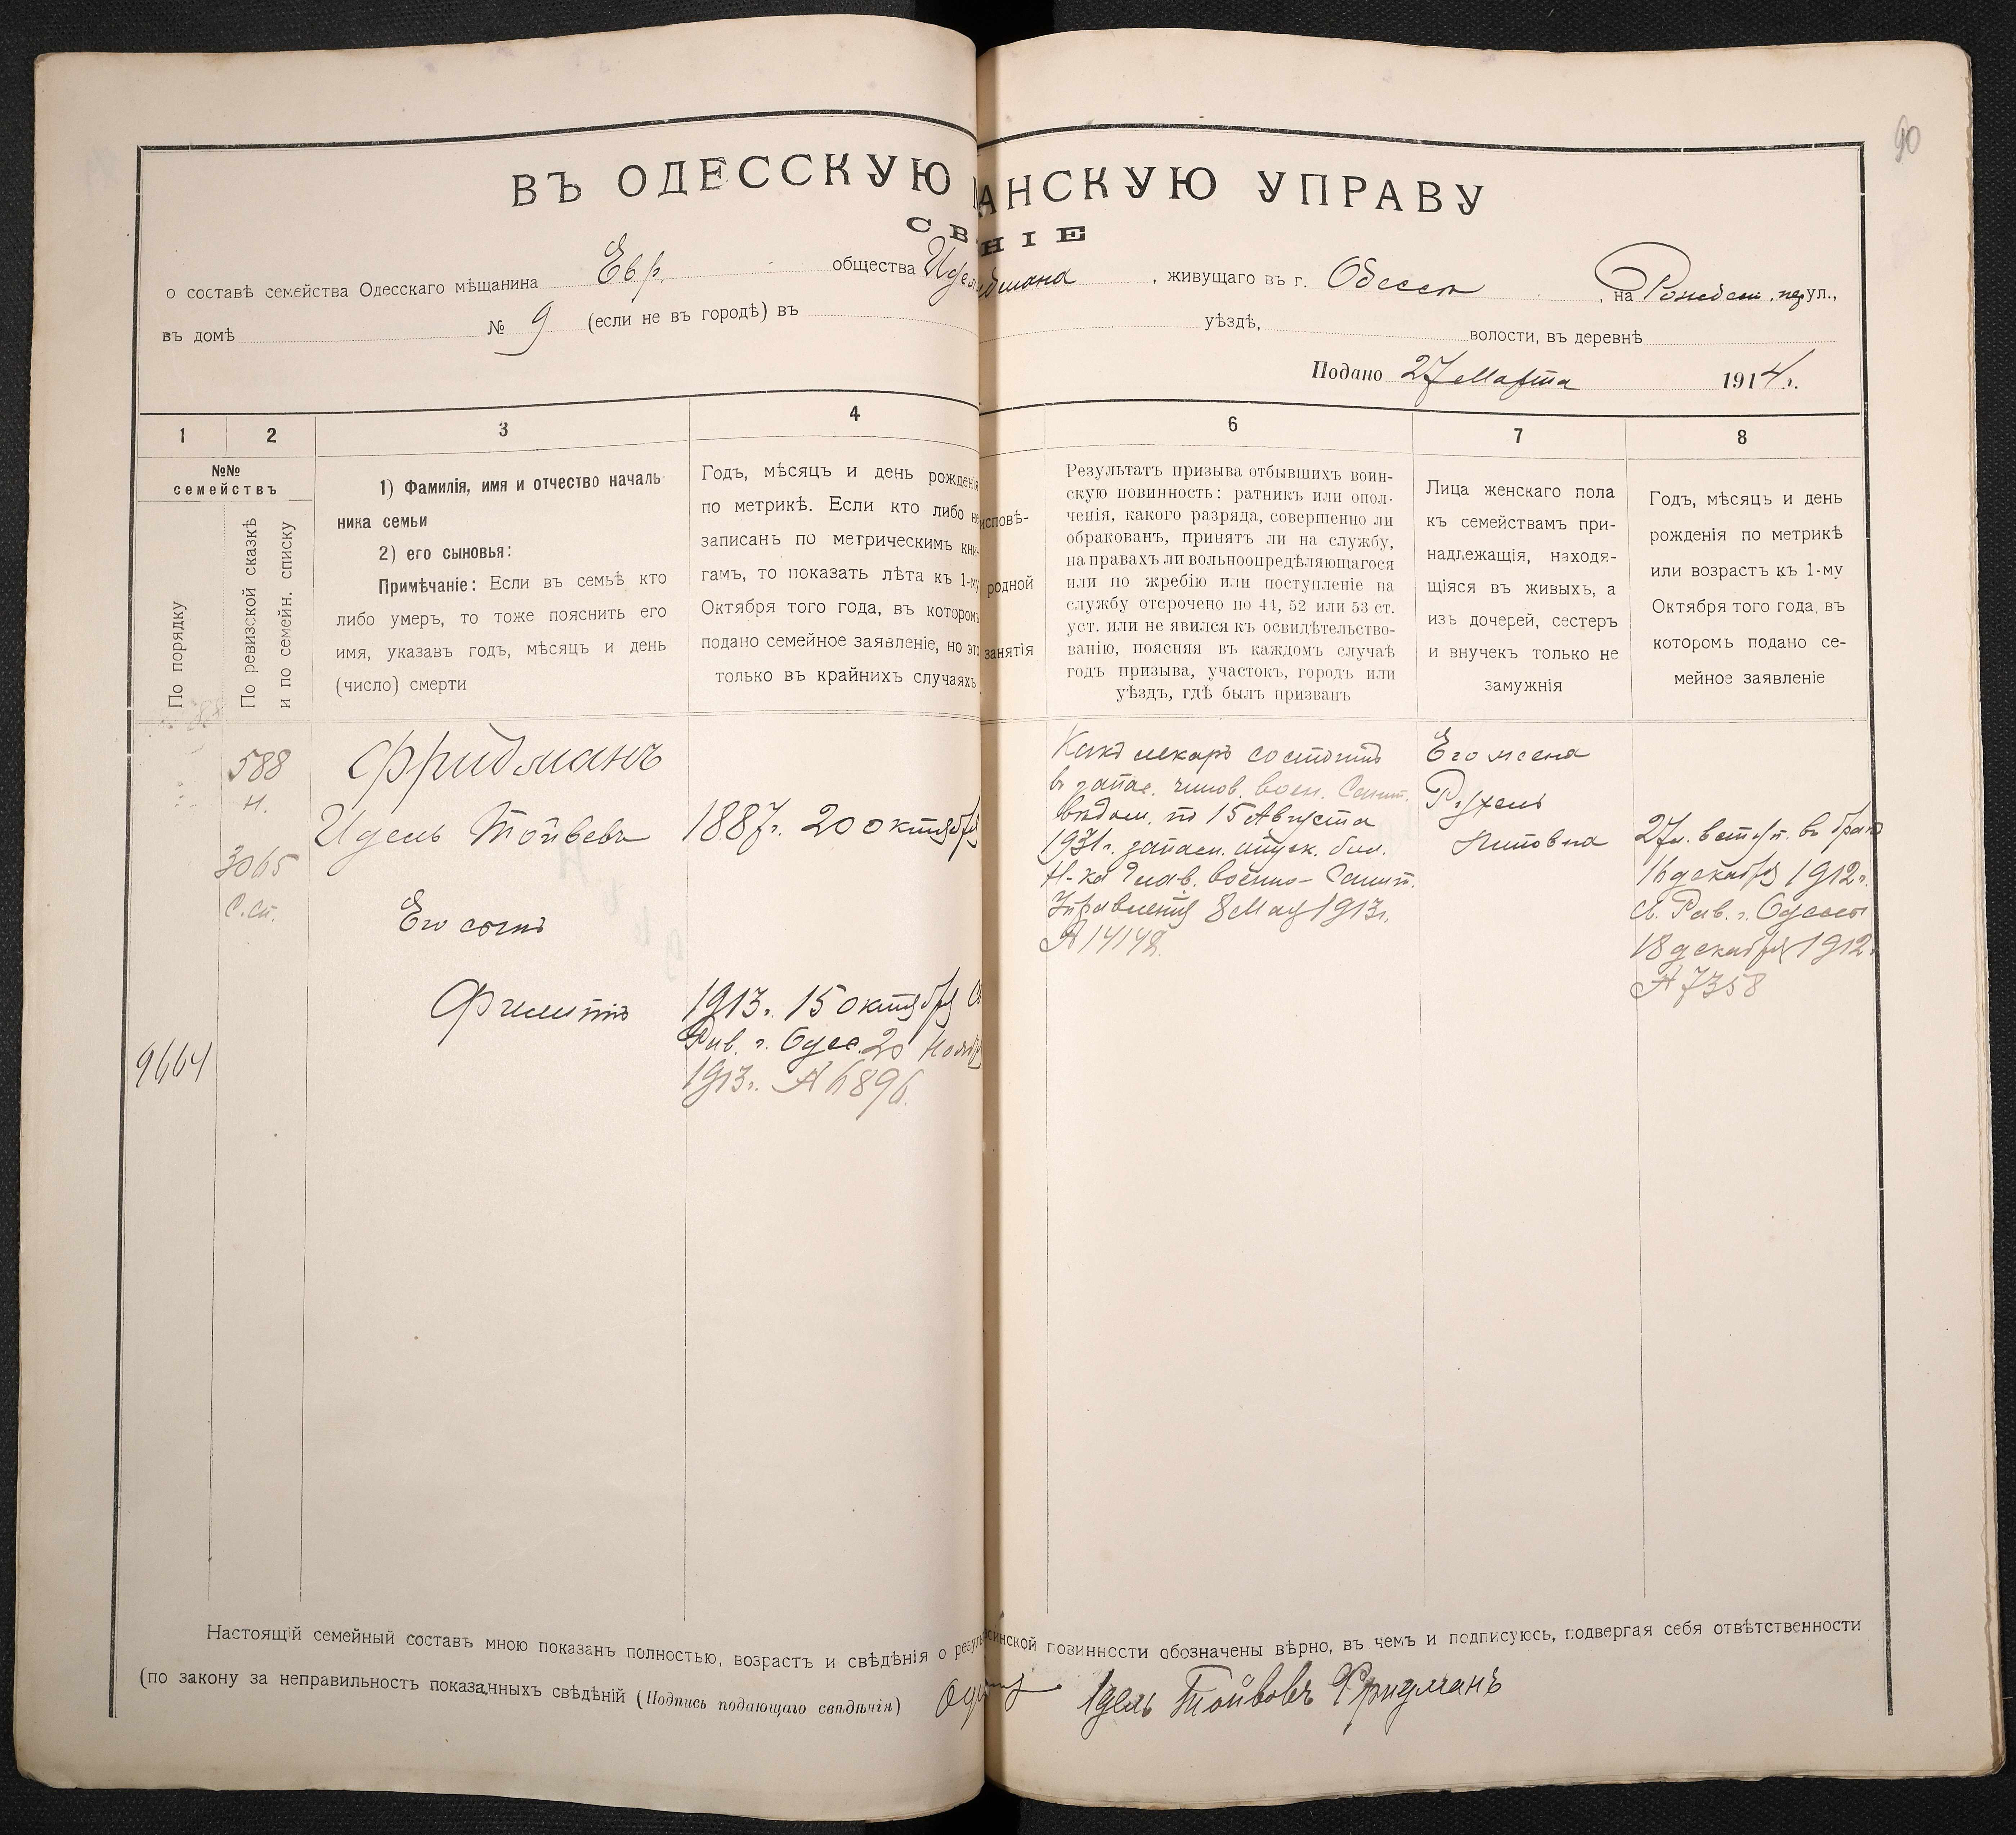 90
ВЪ ОДЕССКУЮ АНСКУЮ УПРАВУ
СВ НІЕ
о составѣ семейства Одесскаго мѣщанина Евр. общества Идел дмана, живущаго въ г. Одессѣ, на ул.,
въ домѣ № 9 (если не въ городѣ) въ уѣздѣ, волости, въ деревнѣ
Подано 27 Марта 1914 г.
1 2 3 4 6 7 8
№№
семействъ
По порядку
По ревизской сказкѣ
и по семейн. списку
1) Фамилія, имя и отчество началь-
ника семьи
2) его сыновья:
Примѣчаніе: Если въ семьѣ кто
либо умеръ, то тоже пояснить его
имя, указавъ годъ, мѣсяцъ и день
(число) смерти
Годъ, мѣсяцъ и день рожденія
по метрикѣ. Если кто либо не
записанъ по метрическимъ кни-
гамъ, то показать лѣта къ 1-му
Октября того года, въ которомъ
подано семейное заявленіе, но это
только въ крайнихъ случаяхъ
исповѣ-
родной
занятія
Результатъ призыва отбывшихъ воин-
скую повинность: ратникъ или опол-
ченія, какого разряда, совершенно ли
обракованъ, принятъ ли на службу,
на правахъ ли вольноопредѣляющагося
или по жребію или поступленіе на
службу отсрочено по 44, 52 или 53 ст.
уст. или не явился къ освидѣтельство-
ванію, поясняя въ каждомъ случаѣ
годъ призыва, участокъ, городъ или
уѣздъ, гдѣ былъ призванъ
Лица женскаго пола
къ семействамъ при-
надлежащія, находя-
щіяся въ живыхъ, а
изъ дочерей, сестеръ
и внучекъ только не
замужнія
Годъ, мѣсяцъ и день
рожденія по метрикѣ
или возрастъ къ 1-му
Октября того года, въ
которомъ подано се-
мейное заявленіе
588
н.
3065
С. сп.
9664
Фридманъ
Идель Тойвевъ 1887 г. 20 октября
Его сынъ
Филиппъ 1913 г. 15 октября
Рав. г. Одес. 20 Нояб
1913 г. № 6896.
Какъ лекарь состоитъ
в запас. чинов. воен. Санит.
вѣдом. по 15 Августа
1931 г. запасн. отпуск. бил.
Н-ка Глав. Военно-Санит.
Управленія 8 Мая 1913 г.
№ 14148.
Его жена
Рухель
27 л. вступ. въ бракъ
16 декабря 1912 г.
Рав. г. Одессы
18 декабря 1912 г.
№ 7358
Настоящій семейный составъ мною показанъ полностью, возрастъ и свѣдѣнія о резул инской повинности обозначены вѣрно, въ чемъ и подписуюсь, подвергая себя отвѣтственности
(по закону за неправильность показанныхъ свѣдѣній (Подпись подающаго свѣдѣнія) Идель Тойвовъ Фридманъ